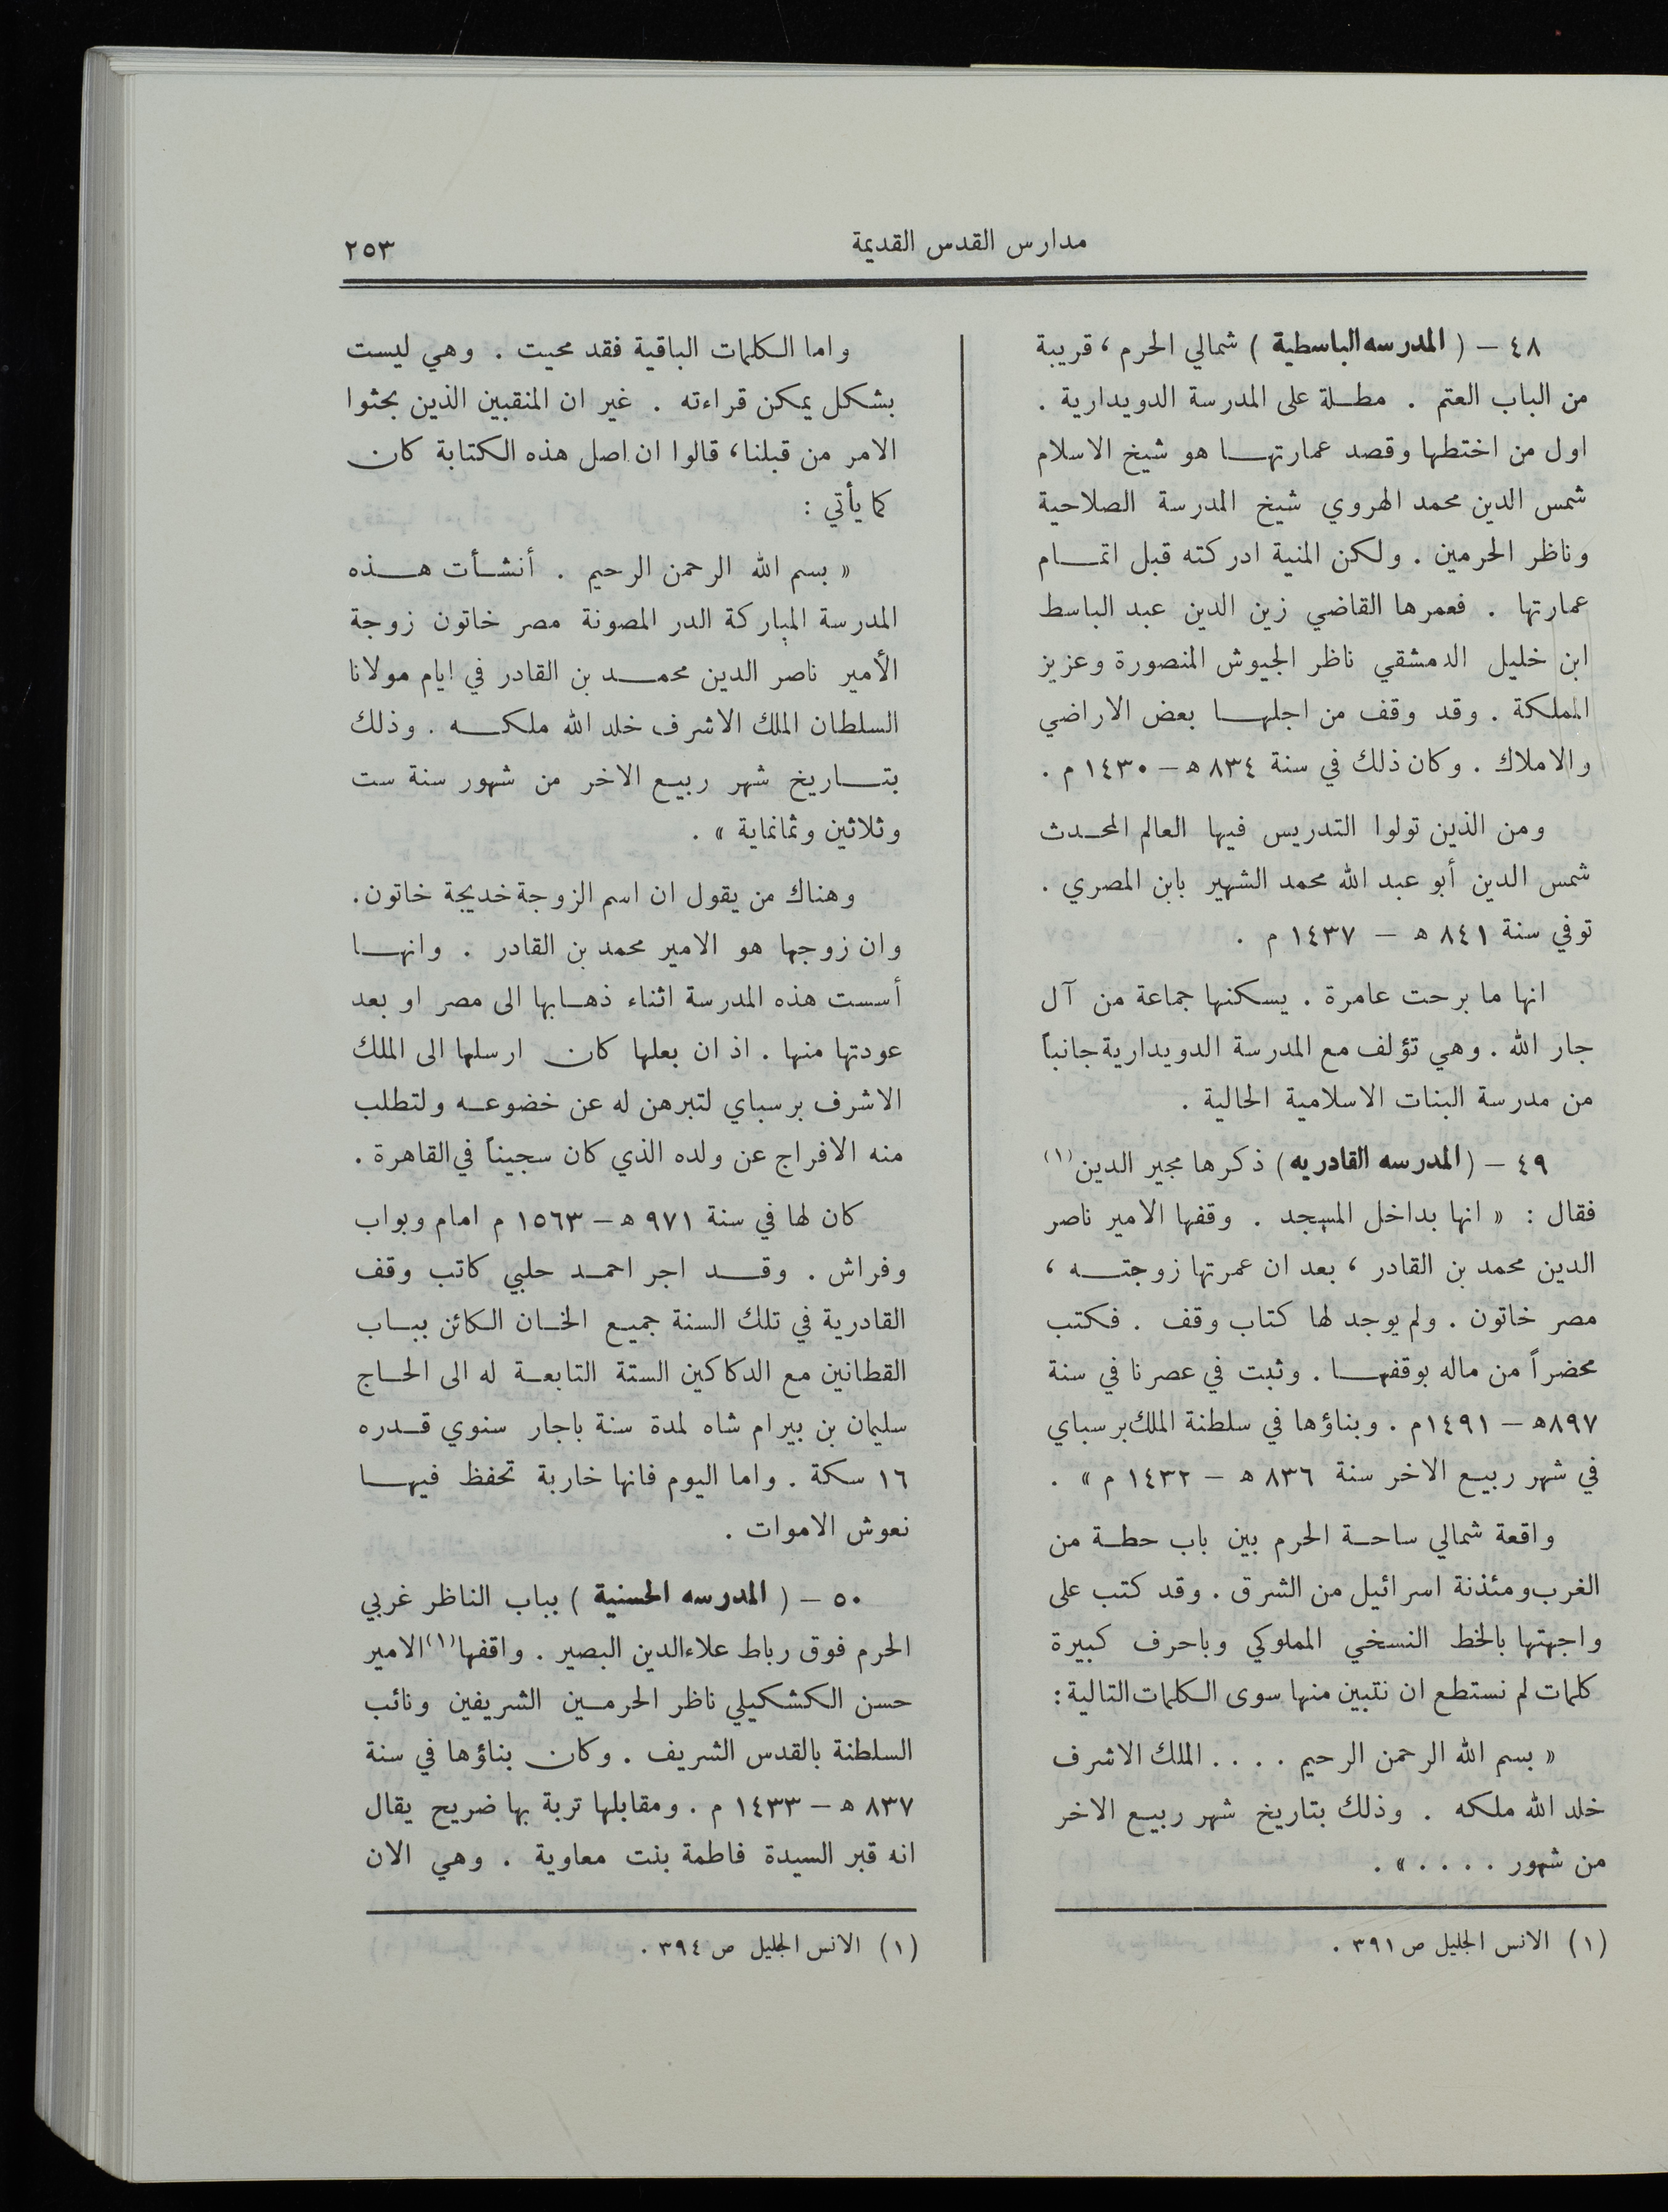 مدارس القدس القديمة
٢٥٣
٤٨ – ( المدرسه الباسطية ) شمالي الحرم ، قريبة
من الباب العتم . مطلة على المدرسة الدويدارية .
اول من اختطها وقصد عمارتها هو شيخ الاسلام
شمس الدين محمد الهروي شيخ المدرسة الصلاحية
وناظر الحرمين . ولكن المنية ادركته قبل اتمام
عمارتها . فعمرها القاضي زين الدين عبد الباسط
ابن خليل الدمشقي ناظر الجيوش المنصورة وعزيز
المملكة . وقد وقف من اجلها بعض الاراضي
والاملاك . وكان ذلك في سنة ٨٣٤ ه – ١٤٣٠ م .
ومن الذين تولوا التدريس فيها العالم المحدث
شمس الدين أبو عبد الله محمد الشهير بابن المصري .
توفي سنة ٨٤١ ه – ١٤٣٧ م .
انها ما برحت عامرة . يسكنها جماعة من آل
جار الله . وهي تؤلف مع المدرسة الدويدارية جانباً
من مدرسة البنات الاسلامية الحالية .
٤٩ – ( المدرسه القادريه ) ذكرها مجير الدين (١)
فقال : « انها بداخل المسجد . وقفها الامير ناصر
الدين محمد بن القادر ، بعد ان عمرتها زوجته ،
مصر خاتون . ولم يوجد لها كتاب وقف . فكتب
محضراً من ماله بوقفها . وثبت في عصرنا في سنة
٨٩٧ه – ١٤٩١م . وبناؤها في سلطنة الملك برسباي
في شهر ربيع الاخر سنة ٨٣٦ ه – ١٤٣٢ م » .
واقعة شمالي ساحة الحرم بين باب حطة من
الغرب ومئذنة اسرائيل من الشرق . وقد كتب على
واجهتها بالخط النسخي المملوكي وباحرف كبيرة
كلمات لم نستطع ان نتبين منها سوى الكلمات التالية :
« بسم الله الرحمن الرحيم . . . . الملك الاشرف
خلد الله ملكه . وذلك بتاريخ شهر ربيع الاخر
من شهور . . . . » .
(١) الانس الجليل ص ٣٩١ .
واما الكلمات الباقية فقد محيت . وهي ليست
بشكل يمكن قراءته . غير ان المنقبين الذين بحثوا
الامر من قبلنا ، قالوا ان اصل هذه الكتابة كان
كما يأتي :
« بسم الله الرحمن الرحيم . أنشأت هذه
المدرسة المباركة الدر المصونة مصر خاتون زوجة
الأمير ناصر الدين محمد بن القادر في ايام مولانا
السلطان الملك الاشرف خلد الله ملكه . وذلك
بتاريخ شهر ربيع الاخر من شهور سنة ست
وثلاثين وثمانماية » .
وهناك من يقول ان اسم الزوجة خديجة خاتون .
وان زوجها هو الامير محمد بن القادر . وانها
أسست هذه المدرسة اثناء ذهابها الى مصر او بعد
عودتها منها . اذ ان بعلها كان ارسلها الى الملك
الاشرف برسباي لتبرهن له عن خضوعه ولتطلب
منه الافراج عن ولده الذي كان سجيناً في القاهرة .
كان لها في سنة ٩٧١ ه – ١٥٦٣ م امام وبواب
وفراش . وقد اجر احمد حلبي كاتب وقف
القادرية في تلك السنة جميع الخان الكائن بباب
القطانين مع الدكاكين الستة التابعة له الى الحاج
سليمان بن بيرام شاه لمدة سنة باجار سنوي قدره
١٦ سكة . واما اليوم فانها خاربة تحفظ فيها
نعوش الاموات .
٥٠ – ( المدرسه الحسنية ) بباب الناظر غربي
الحرم فوق رباط علاء الدين البصير . واقفها (١) الامير
حسن الكشكيلي ناظر الحرمين الشريفين ونائب
السلطنة بالقدس الشريف . وكان بناؤها في سنة
٨٣٧ ه – ١٤٣٣ م . ومقابلها تربة بها ضريح يقال
انه قبر السيدة فاطمة بنت معاوية . وهي الان
(١) الانس الجليل ص ٣٩٤ .